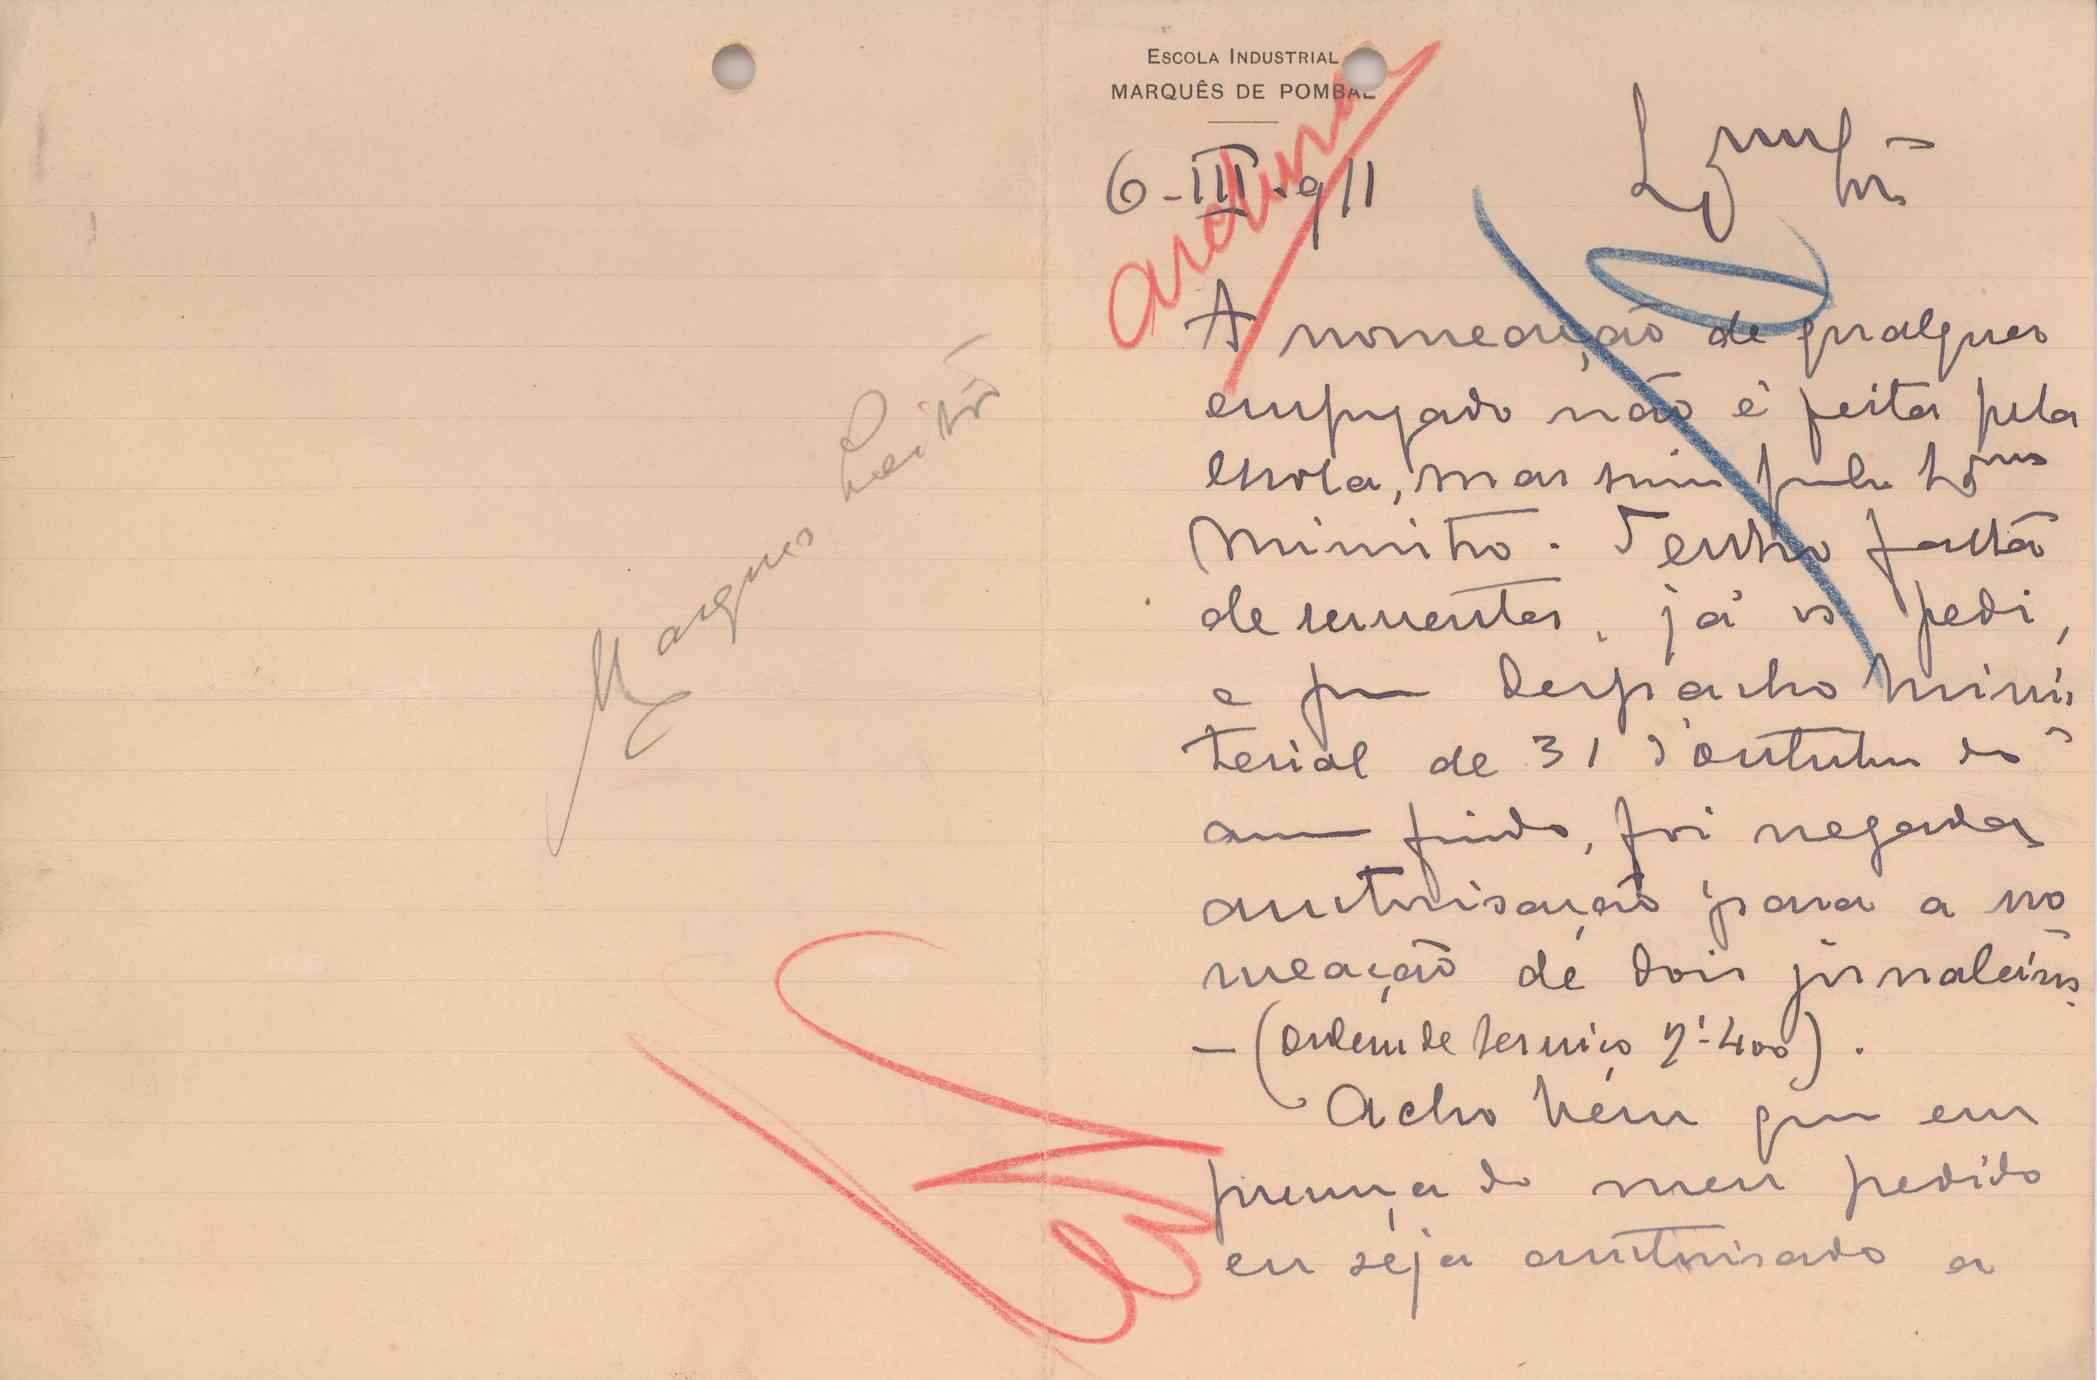 Marques Leitão
ESCOLA INDUSTRIAL
MARQUÊS DE POMBAL
6-III-911
A nomeação de qualquer
empregado não é feita pela
escola, mas sim pelo
Ministro. Tenho falta
de serventes, já os pedi,
e por despacho minis
terial de 31 d'outubro do
anno findo, foi negada
autorisação para a no
meação de dois jornaleiros
— (ordem de serviço nº 400).
Acho bem que em
presença do meu pedido
eu seja autorisado a